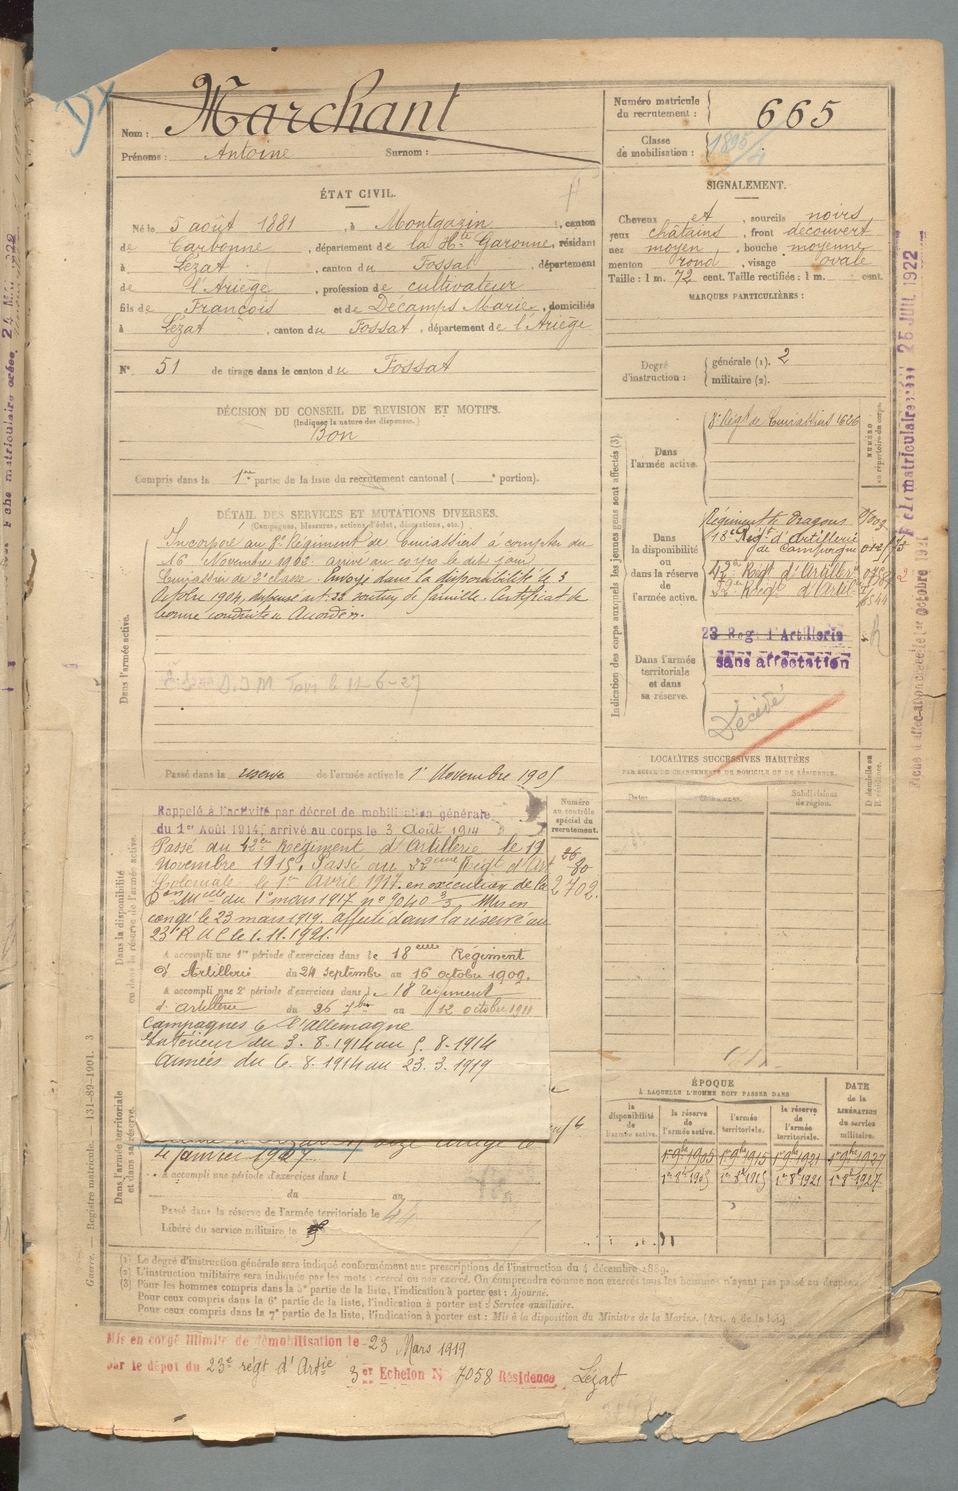 Nom : Marchant
Prénoms : Antoine Surnom :
Numéro matricule
du recrutement : 665
Classe
de mobilisation :
ÉTAT CIVIL.
Né le 5 août 1881, à Montgazin, canton
de Carbonne, département de la Hte Garonne, résidant
à Lézat, canton du Fossat, département
de l'Ariège, profession de cultivateur
fils de François et de Décamps Marie, domiciliés
à Lézat, canton du Fossat, département de l'Ariège
N° 51 de tirage dans le canton du Fossat
SIGNALEMENT.
Cheveux et, sourcils noirs
yeux châtains, front découvert
nez moyen, bouche moyenne
menton rond, visage ovale
Taille : 1 m. 72 cent. Taille rectifiée : 1 m. cent.
MARQUES PARTICULIÈRES :
Degré
d'instruction :
générale (1). 2
militaire (2).
DÉCISION DU CONSEIL DE REVISION ET MOTIFS.
(Indiquer la nature des dispenses.)
Bon
Compris dans la 1re partie de la liste du recrutement cantonal ( e portion).
DÉTAIL DES SERVICES ET MUTATIONS DIVERSES.
(Campagnes, blessures, actions d'éclat, décorations, etc.)
Dans l'armée active.
Incorporé au 8e Régiment de Cuirassiers à compter du
16 Novembre 1903 arrivé au corps le dit jour
Cuirassier de 2e classe. Envoyé dans la disponibilité le 3
Octobre 1904, dispensé art. 22 soutien de famille. Certificat de
bonne conduite Accordé.
Passé dans la réserve de l'armée active le 1er Novembre 1905
Indication des corps auxquels les jeunes gens sont affectés (3).
NUMÉRO
au répertoire du corps.
Dans
l'armée active.
8e Régt de Cuirassiers 1626
Dans
la disponibilité
ou
dans la réserve
de
l'armée active.
Régiment de Dragons
18e Régt d'Artillerie
de Campagne
42e Régt d'Artillerie
22e Régt d'Artil
Dans l'armée
territoriale
et dans
sa réserve.
23 Reg. d'Artillerie
sans affectation
Décédé
LOCALITÉS SUCCESSIVES HABITÉES
PAR SUITE DE CHANGEMENTS DE DOMICILE OU DE RÉSIDENCE.
Dates. Communes. Subdivisions
de région.
D domicile ou
R résidence.
Dans la disponibilité
ou dans la réserve de l'armée active
Numéro
au contrôle
spécial du
recrutement.
Rappelé à l'activité par décret de mobilisation générale
du 1er Août 1914, arrivé au corps le 3 Août 1914
Passé au 42e Régiment d'Artillerie le 19
Novembre 1915. Passé au 22ème Régt d'Art
Coloniale le 1er Avril 1917. en exécution de la
Don Melle du 1er mars 1917 n° 7040 3/3, Mis en
congé le 23 mars 1919. affecté dans la réserve au
23e R A C le 1.11.1921.
26
80
2702.
A accompli une 1re période d'exercices dans le 18eme Régiment
d'Artillerie du 24 septembre au 16 octobre 1909.
A accompli une 2e période d'exercices dans le 18 régiment
d'artillerie du 26 7bre au 12 octobre 1911
Campagnes c. l'Allemagne
Intérieur du 3.8.1914 au 5.8.1914
Armées du 6.8.1914 au 23.3.1919
Dans l'armée territoriale
et dans sa réserve.
A accompli une période d'exercices dans l
du au
Passé dans la réserve de l'armée territoriale le
Libéré du service militaire le
ÉPOQUE
À LAQUELLE L'HOMME DOIT PASSER DANS
DATE
de la
LIBÉRATION
du service
militaire.
la
disponibilité
de l'armée active.
la réserve
de
l'armée active.
l'armée
territoriale.
la réserve
de l'armée
territoriale.
1er 9bre 1905 1er 9bre 1915 1er 9bre 1921 1er 9bre 1927
1er 8e 1905 1er 8e 1915 1er 8e 1921 1er 8e 1927
(1) Le degré d'instruction générale sera indiqué conformément aux prescriptions de l'instruction du 4 décembre 1889.
(2) L'instruction militaire sera indiquée par les mots : exercé ou non exercé. On comprendra comme non exercés tous les hommes n'ayant pas passé au drapeau.
(3) Pour les hommes compris dans la 5e partie de la liste, l'indication à porter est : Ajourné.
Pour ceux compris dans la 6e partie de la liste, l'indication à porter est : Service auxiliaire.
Pour ceux compris dans la 7e partie de la liste, l'indication à porter est : Mis à la disposition du Ministre de la Marine. (Art. 4 de la loi.)
Mis en congé illimité de démobilisation le 23 Mars 1919
par le dépôt du 23e régt d'Artie 3e Echelon N° 7058 Résidence Lézat
Guerre. — Registre matricule. — 131-89-1901. 3